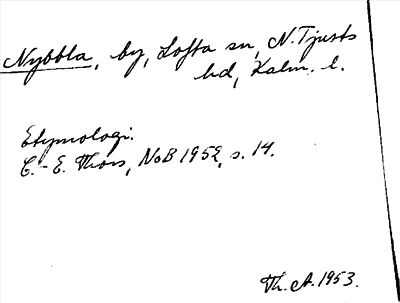 Nybbla, by, Lofta sn, N. Tjusts
hd, Kalm. l.
Etymologi.
C.-E. Thors, NoB 1952, s. 14.
Th. A. 1953.